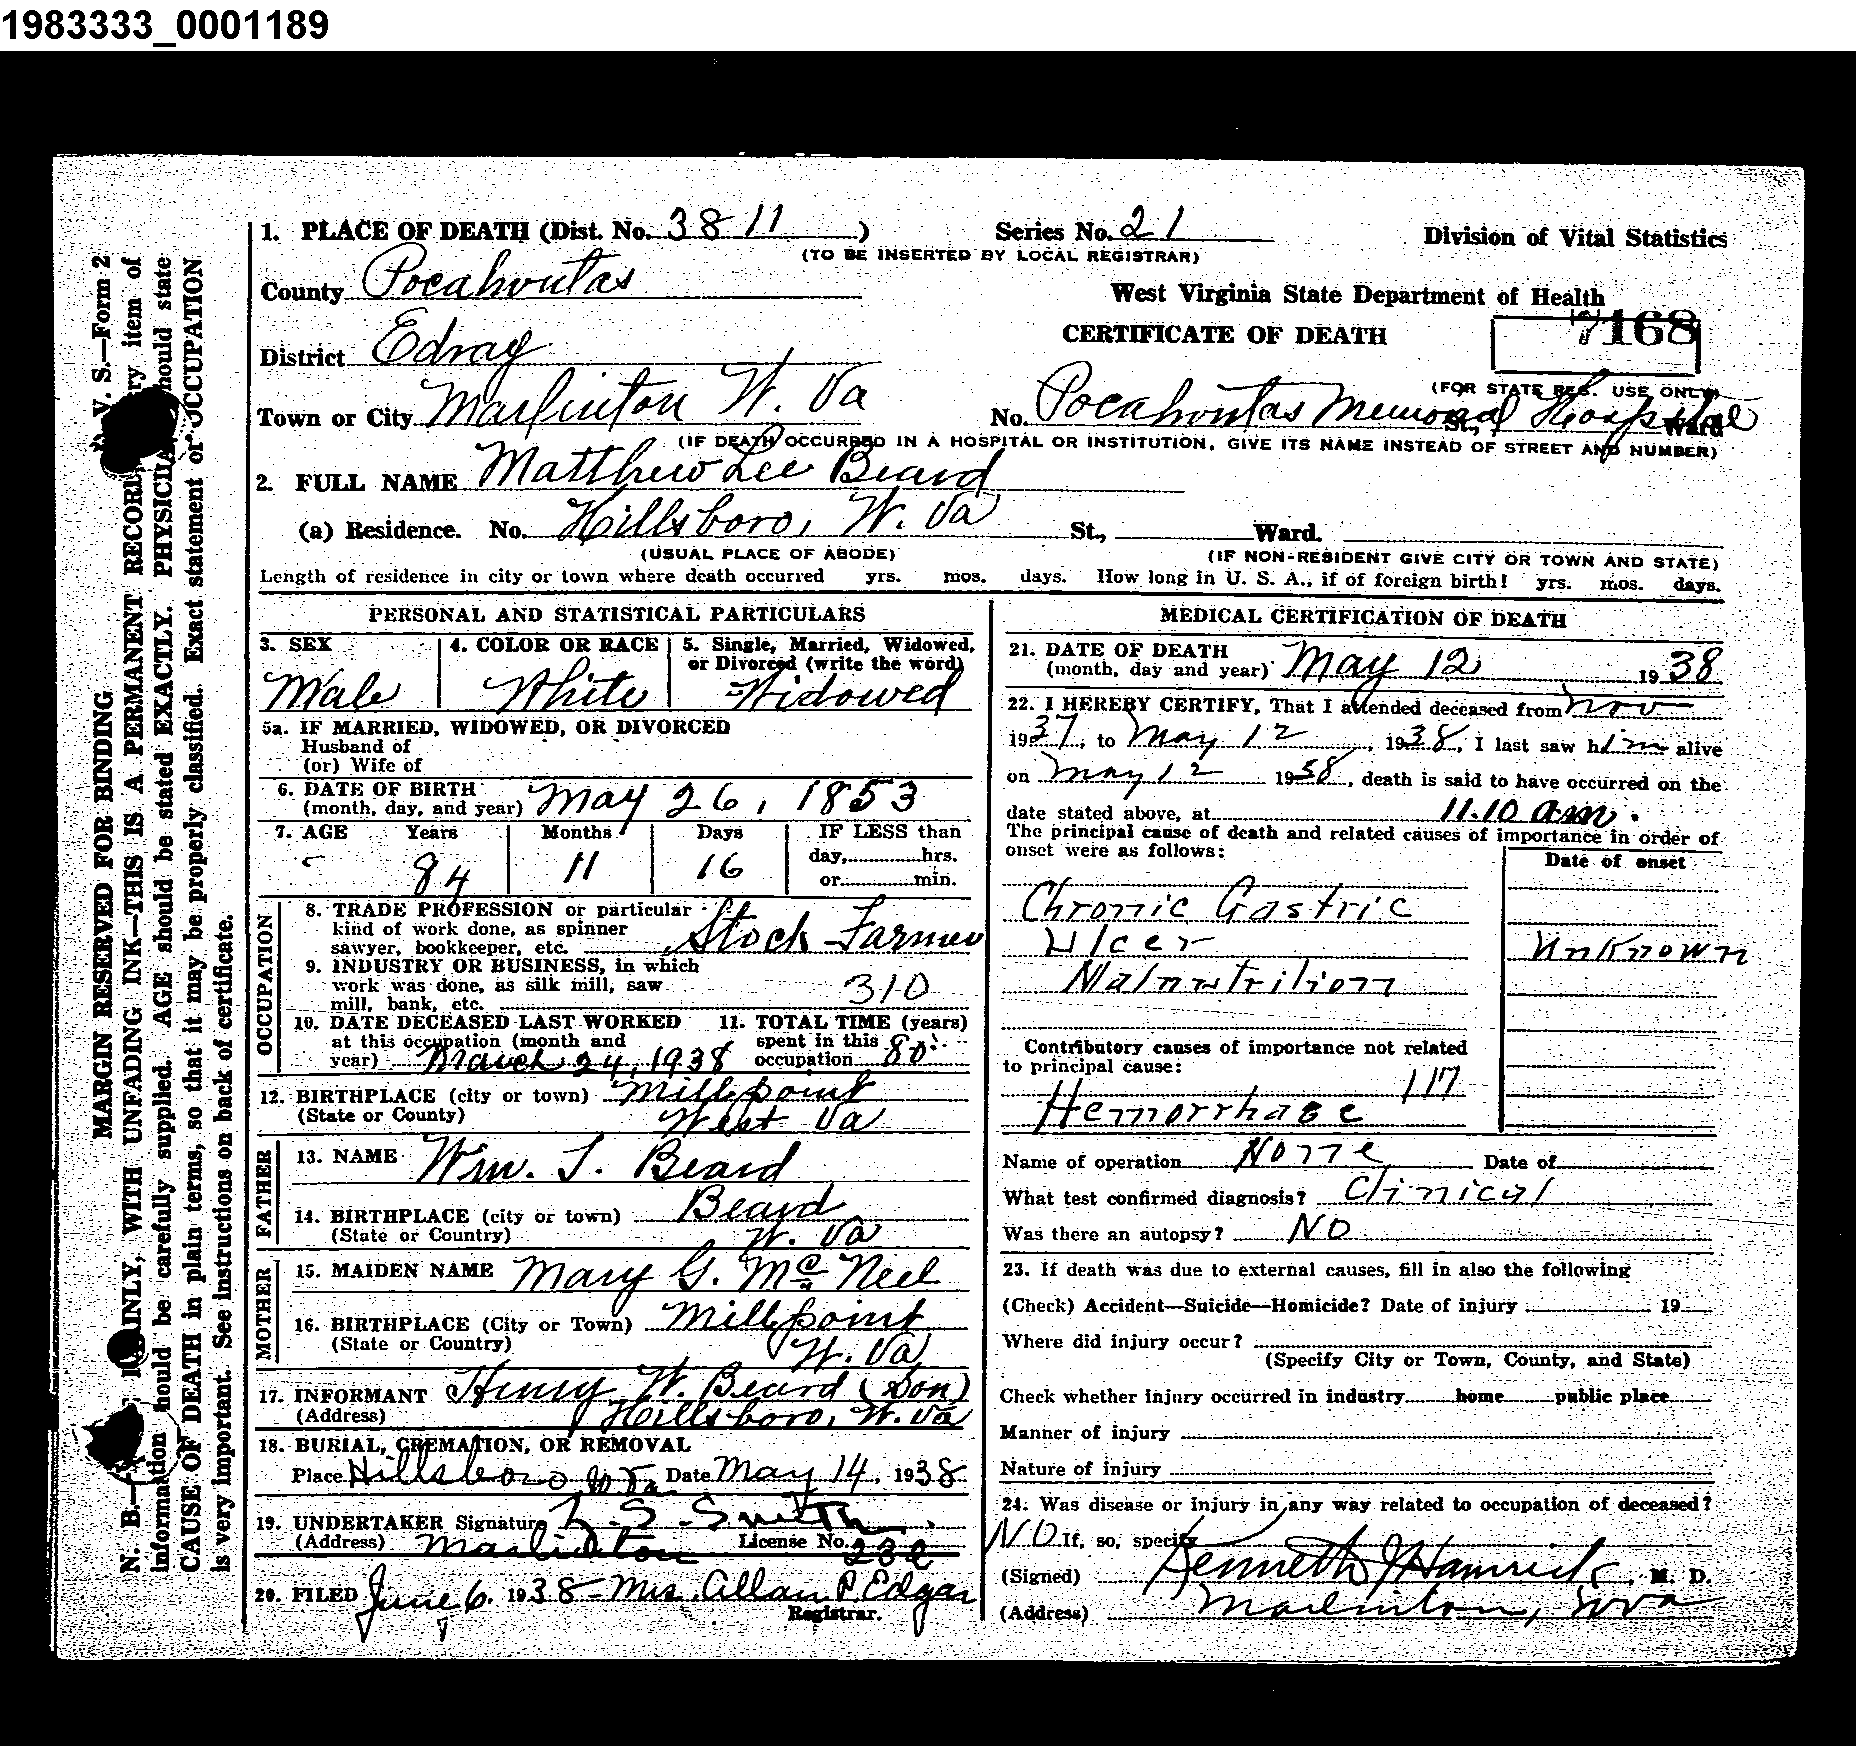 1983333_0001189
1. PLACE OF DEATH (Dist. No. 3811 ) Series No. 21 Division of Vital Statistics
(TO BE INSERTED BY LOCAL REGISTRAR)
County Pocahontas West Virginia State Department of Health
CERTIFICATE OF DEATH 7168
District Edray
(FOR STATE REG. USE ONLY)
Town or City Marlinton W. Va No. Pocahontas Memorial Hospital St., Ward
(IF DEATH OCCURRED IN A HOSPITAL OR INSTITUTION, GIVE ITS NAME INSTEAD OF STREET AND NUMBER)
2. FULL NAME Matthew Lee Beard
(a) Residence. No. Hillsboro, W. Va St., Ward.
(USUAL PLACE OF ABODE) (IF NON-RESIDENT GIVE CITY OR TOWN AND STATE)
Length of residence in city or town where death occurred yrs. mos. days. How long in U. S. A., if of foreign birth! yrs. mos. days.
PERSONAL AND STATISTICAL PARTICULARS
3. SEX 4. COLOR OR RACE 5. Single, Married, Widowed,
or Divorced (write the word)
Male White Widowed
5a. IF MARRIED, WIDOWED, OR DIVORCED
Husband of
(or) Wife of
6. DATE OF BIRTH
(month, day, and year) May 26, 1853
7. AGE Years Months Days IF LESS than
day, hrs.
84 11 16
or min.
OCCUPATION
8. TRADE PROFESSION or particular
kind of work done, as spinner
sawyer, bookkeeper, etc. Stock Farmer
9. INDUSTRY OR BUSINESS, in which
work was done, as silk mill, saw
mill, bank, etc. 310
10. DATE DECEASED LAST WORKED 11. TOTAL TIME (years)
at this occupation (month and spent in this
year) March 24, 1938 occupation 80
12. BIRTHPLACE (city or town) Millpoint
(State or County) West Va
FATHER
13. NAME Wm. T. Beard
14. BIRTHPLACE (city or town) Beard
(State or Country) W. Va
MOTHER
15. MAIDEN NAME Mary G. McNeel
16. BIRTHPLACE (City or Town) Millpoint
(State or Country) W. Va
17. INFORMANT Henry W. Beard (Son)
(Address) Hillsboro, W. Va
18. BURIAL, CREMATION, OR REMOVAL
Place Hillsboro W Va Date May 14, 1938
19. UNDERTAKER Signature L. S. Smith
(Address) Marlinton License No.
20. FILED June 6, 1938 - Mrs. Allan P. Edgar
Registrar.
MEDICAL CERTIFICATION OF DEATH
21. DATE OF DEATH
(month, day and year) May 12 1938
22. I HEREBY CERTIFY, That I attended deceased from Nov
1937, to May 12, 1938, I last saw him alive
on May 12 1938, death is said to have occurred on the
date stated above, at 11.10 a.m.
The principal cause of death and related causes of importance in order of
onset were as follows:
Date of onset
Chronic Gastric
Ulcer Unknown
Malnutrition
Contributory causes of importance not related
to principal cause:
117
Hemorrhage
Name of operation None Date of
What test confirmed diagnosis? Clinical
Was there an autopsy? No
23. If death was due to external causes, fill in also the following
(Check) Accident—Suicide—Homicide? Date of injury 19
Where did injury occur?
(Specify City or Town, County, and State)
Check whether injury occurred in industry home public place
Manner of injury
Nature of injury
24. Was disease or injury in any way related to occupation of deceased?
NO If, so, specify
(Signed) Kenneth J Hamrick, M. D.
(Address) Marlinton, W Va
V. S.—Form 2
MARGIN RESERVED FOR BINDING
N. B.— PLAINLY, WITH UNFADING INK—THIS IS A PERMANENT RECORD. Every item of
information should be carefully supplied. AGE should be stated EXACTLY. PHYSICIANS should state
CAUSE OF DEATH in plain terms, so that it may be properly classified. Exact statement of OCCUPATION
is very important. See instructions on back of certificate.